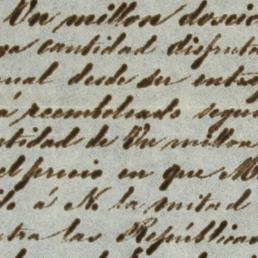 Un millon doscie
na cantidad disfruta
ual desde su entre
á reembolsado segu
ntidad de Un millon
el precio en que M
ilo á No la mitad
tra las República